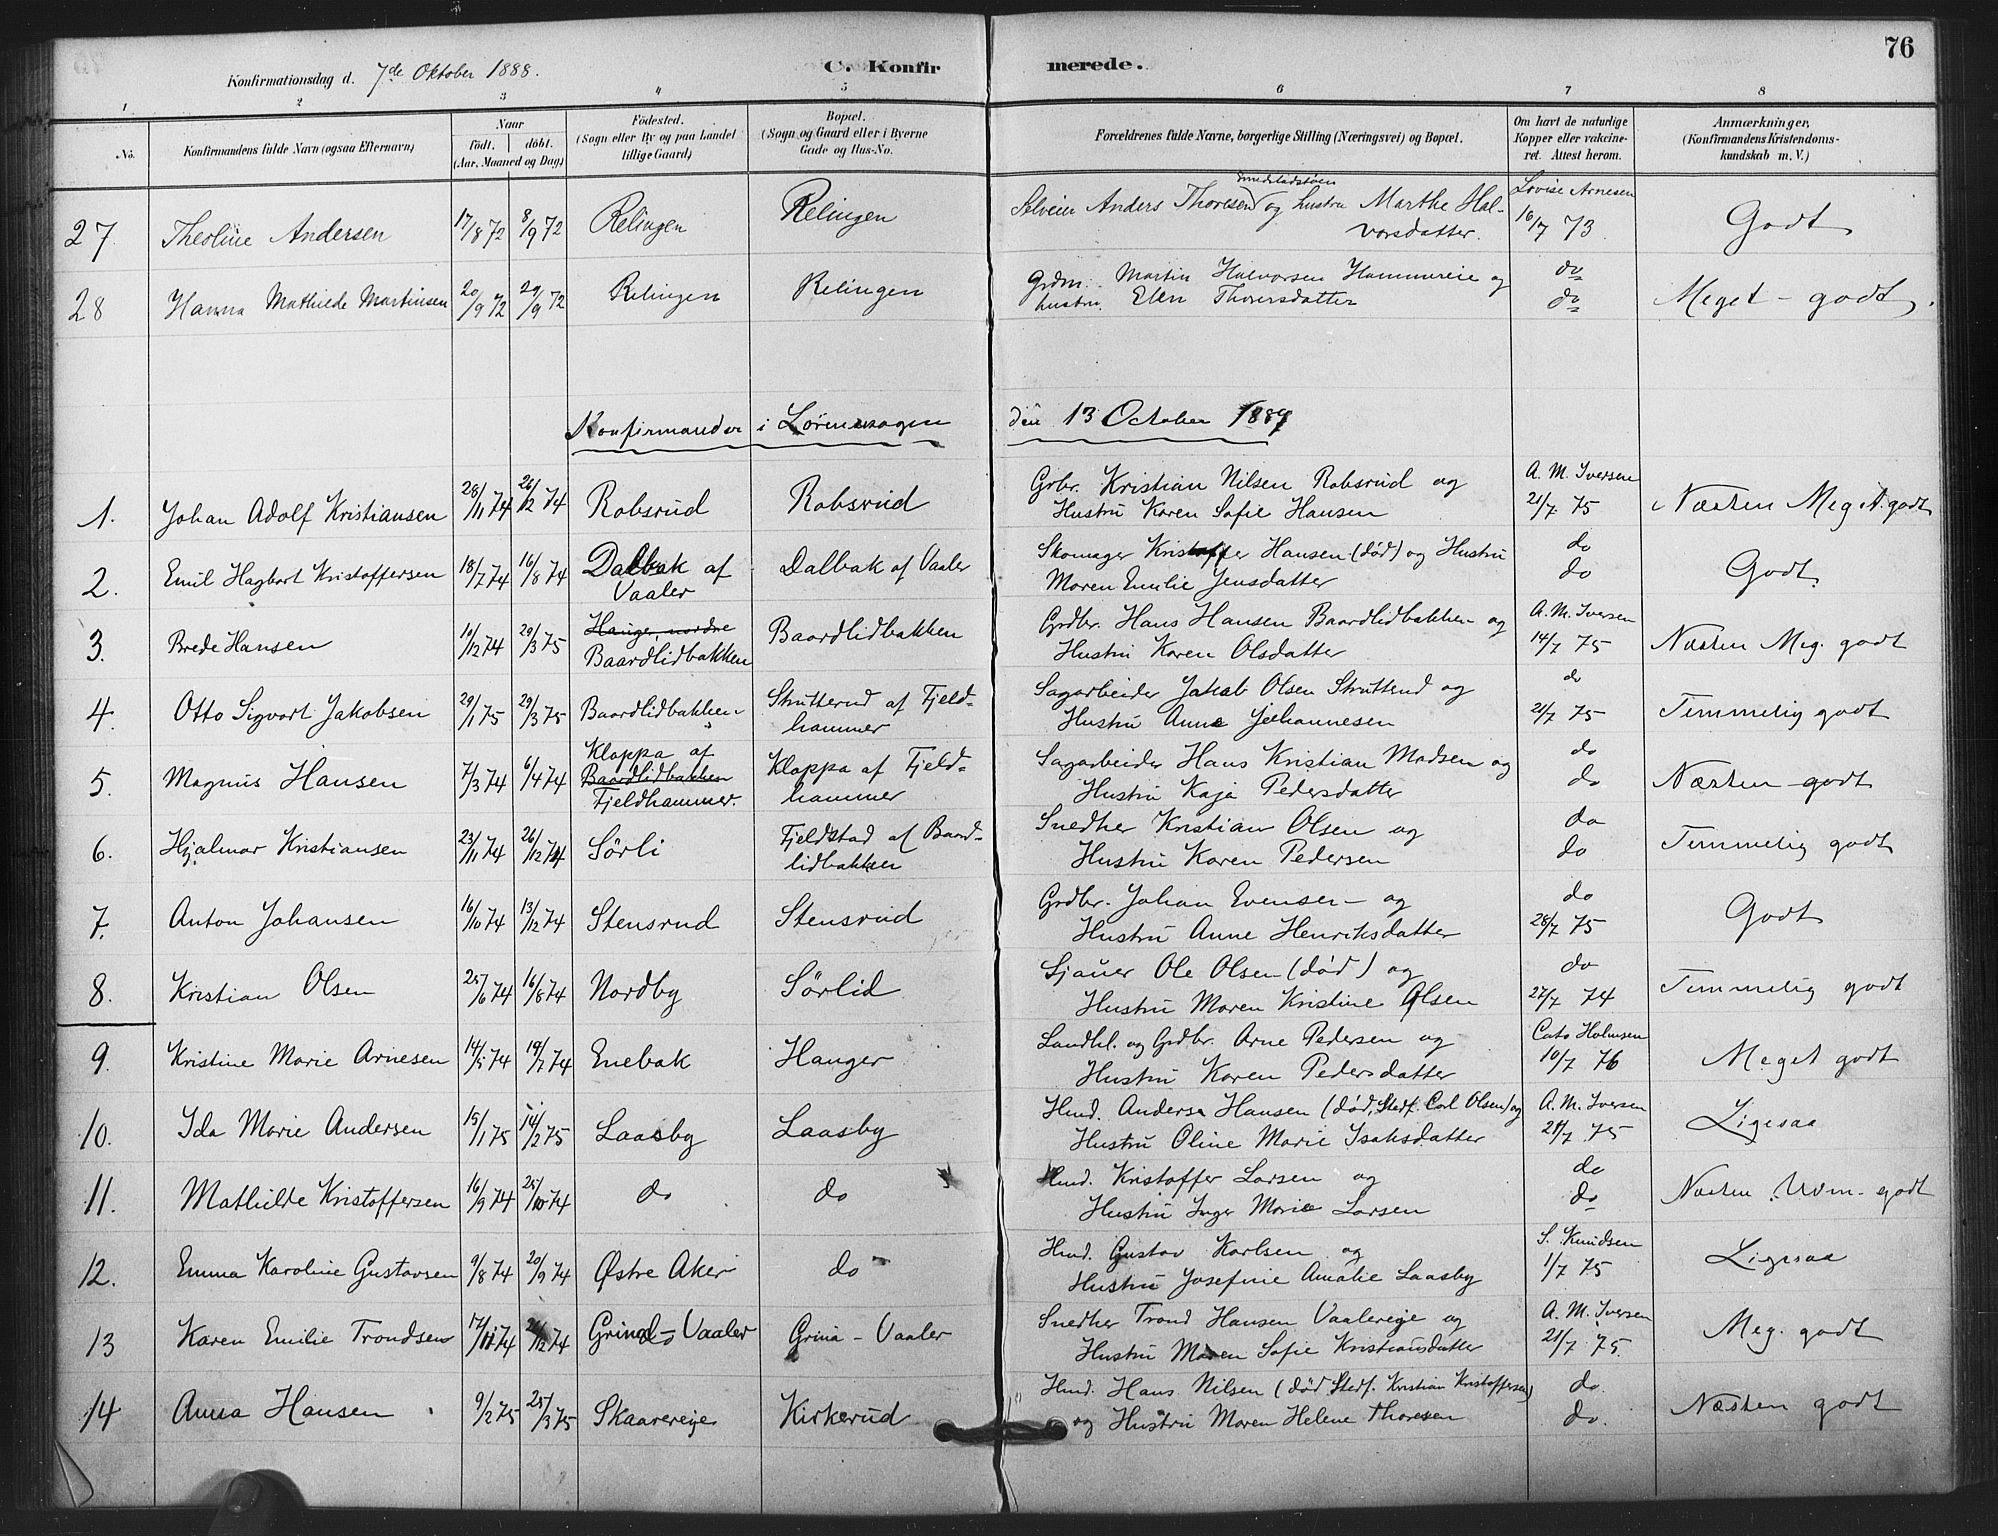 76
Konfirmationsdag d. 7de Oktober 1888.
C. Konfirmerede.
1 2 3 4 5 6 7 8
No. | Konfirmandens fulde Navn (ogsaa Efternavn) | Naar födt. döbt. (Aar, Maaned og Dag) | Födested. (Sogn eller By og paa Landet tillige Gaard) | Bopæl. (Sogn og Gaard eller i Byerne Gade og Hus-No. | Forældrenes fulde Navne, borgerlige Stilling (Næringsvei) og Bopæl. | Om havt de naturlige Kopper eller vakcineret. Attest herom. | Anmærkninger, (Konfirmandens Kristendomskundskab m. V.)
27 | Theoline Andersen | 17/8 72 | 8/9 72 | Relingen | Relingen | Selveier Anders Thoresen og hustru Marthe Halvorsdatter. | Lovise Arnesen 16/7 73 | Godt
28 | Hanna Mathilde Martinsen | 20/9 72 | 29/9 72 | Relingen | Relingen | Grdm. Martin Halvorsen Hammereie og hustru. Elen Thorersdatter | do do | Meget - godt.
Konfirmander i Lørenssogen den 13 October 1889
1. | Johan Adolf Kristiansen | 28/11 74 | 26/12 74 | Robsrud | Robsrud | Grbr. Kristian Nilsen Robsrud og Hustru Karen Sofie Hansen | A. M. Iversen 21/7 75 | Næsten Meget godt
2. | Emil Hagbart Kristoffersen | 18/7 74 | 16/8 74 | Dalbak af Vaaler | Dalbak af Vaaler | Skomager Kristoffer Hansen (död) og Hustru Maren Emilie Jensdatter | do do | Godt.
3. | Brede Hansen | 10/12 74 | 29/3 75 | Hauger, nordre Baardlidbakken | Baardlidbakken | Grdbr. Hans Hansen Baardlidbakken og Hustru Karen Olsdatter | A. M. Iversen 14/7 75 | Næsten Meg. godt
4. | Otto Sigvart Jakobsen | 29/1 75 | 29/3 75 | Baardlidbakken | Strutterud af Fjeldhammer | Sagarbeider Jakob Olsen Strutterud og Hustru Anne Johannesen | do 21/7 75 | Temmelig godt
5. | Magnus Hansen | 7/3 74 | 6/4 74 | Klappa af Baardlidbakken Fjeldhammer. | Klappa af Fjeldhammer | Sagarbeider Hans Kristian Madsen og Hustru Kaja Pedersdatter | do do | Næsten godt
6. | Hjalmar Kristiansen | 23/11 74 | 26/12 74 | Sörli | Fjeldstad af Baardlidbakken | Snedker Kristian Olsen og Hustru Karen Pedersen | do do | Temmelig godt
7. | Anton Johansen | 16/10 74 | 13/12 74 | Stensrud | Stensrud | Grdbr. Johan Evensen og Hustru Anne Henriksdatter | do 28/7 75 | Godt
8. | Kristian Olsen | 25/6 74 | 16/8 74 | Nordby | Sörlid | Sjauer Ole Olsen (död) og Hustru Maren Kristine Olsen | do 27/7 74 | Temmelig godt
9. | Kristine Marie Arnesen | 14/5 74 | 19/7 74 | Enebak | Hauger | Landhl. og Grdbr. Arne Pedersen og Hustru Karen Pedersdatter | Cato Holmsen 10/7 76 | Meget godt
10. | Ida Marie Andersen | 15/1 75 | 14/2 75 | Laasby | Laasby | Hmd. Anders Hansen (död, Stedf. Carl Olsen) og Hustru Oline Marie Isaksdatter | A. M. Iversen 21/7 75 | Ligesaa
11. | Mathilde Kristoffersen | 16/9 74 | 25/10 74 | do | do | Hmd. Kristoffer Larsen og Hustru Inger Marie Larsen | do do | Næsten godt
12. | Emma Karoline Gustavsen | 9/8 74 | 20/9 74 | Østre Aker | do | Hmd. Gustav Karlsen og Hustru Josefine Amalie Laasby | S. Knudsen 1/7 75 | Ligesaa
13 | Karen Emilie Trondsen | 17/11 74 | 26/12 74 | Grina - Vaaler | Grina - Vaaler | Snedker Trond Hansen Vaalereie og Hustru Maren Sofie Kristiansdatter | A. M. Iversen 21/7 75. | Meg. godt
14 | Anna Hansen | 9/2 75 | 25/3 75 | Skaarereie | Kirkerud | Hmd. Hans Nilsen (död Stedf. Kristian Kristoffersen) og Hustru Maren Helene Thoresen | do. do. | Næsten godt